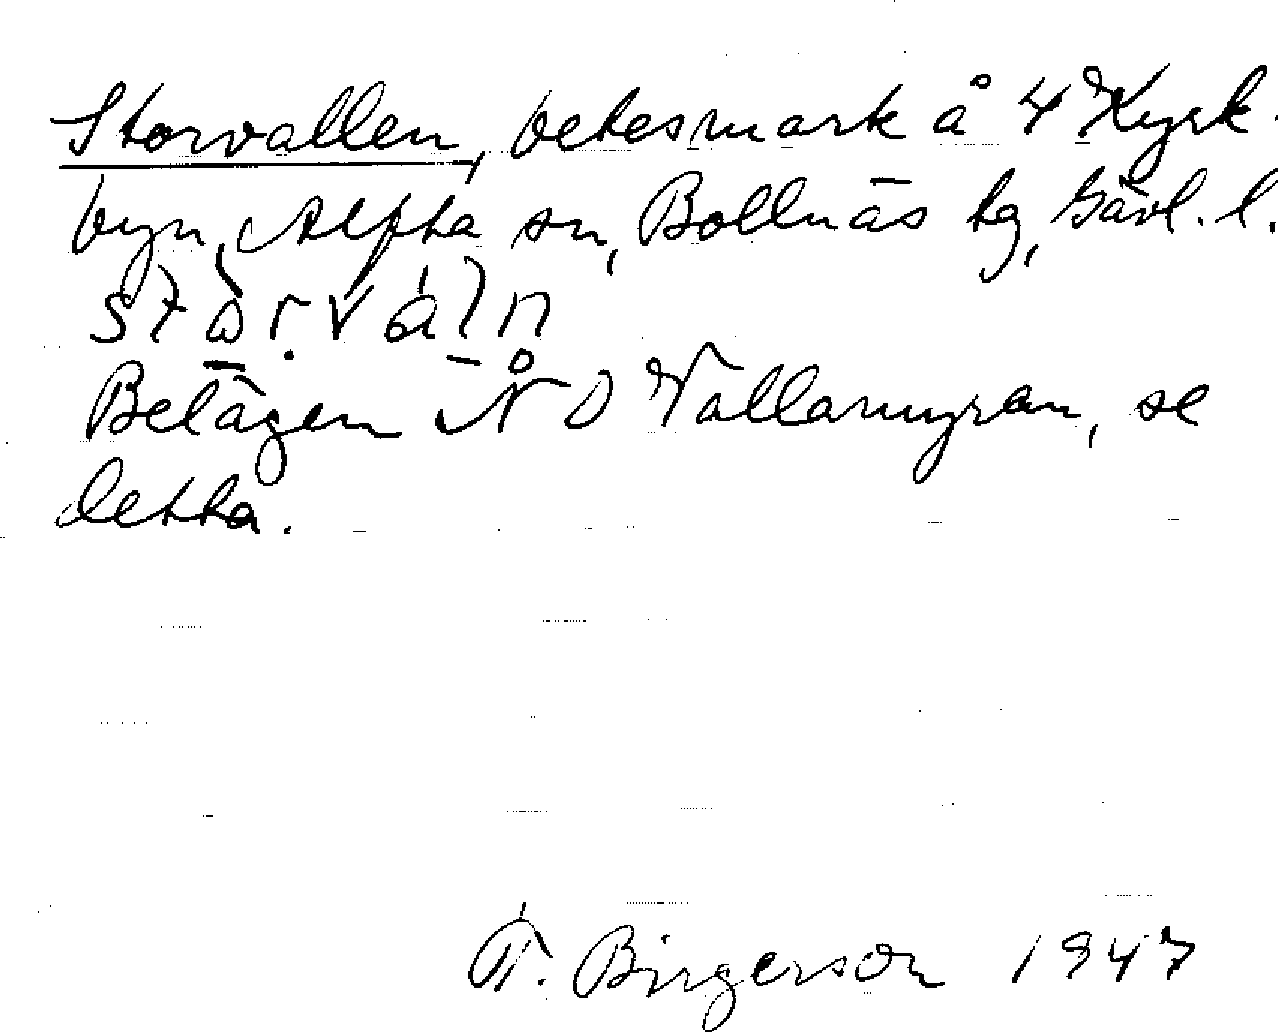 Storvallen, betesmark å 4 Kyrk-
byn, Alfta sn, Bollnäs tg, Gävl. l.
Belägen NO Vallamyran, se
detta.
Birgerson 1947